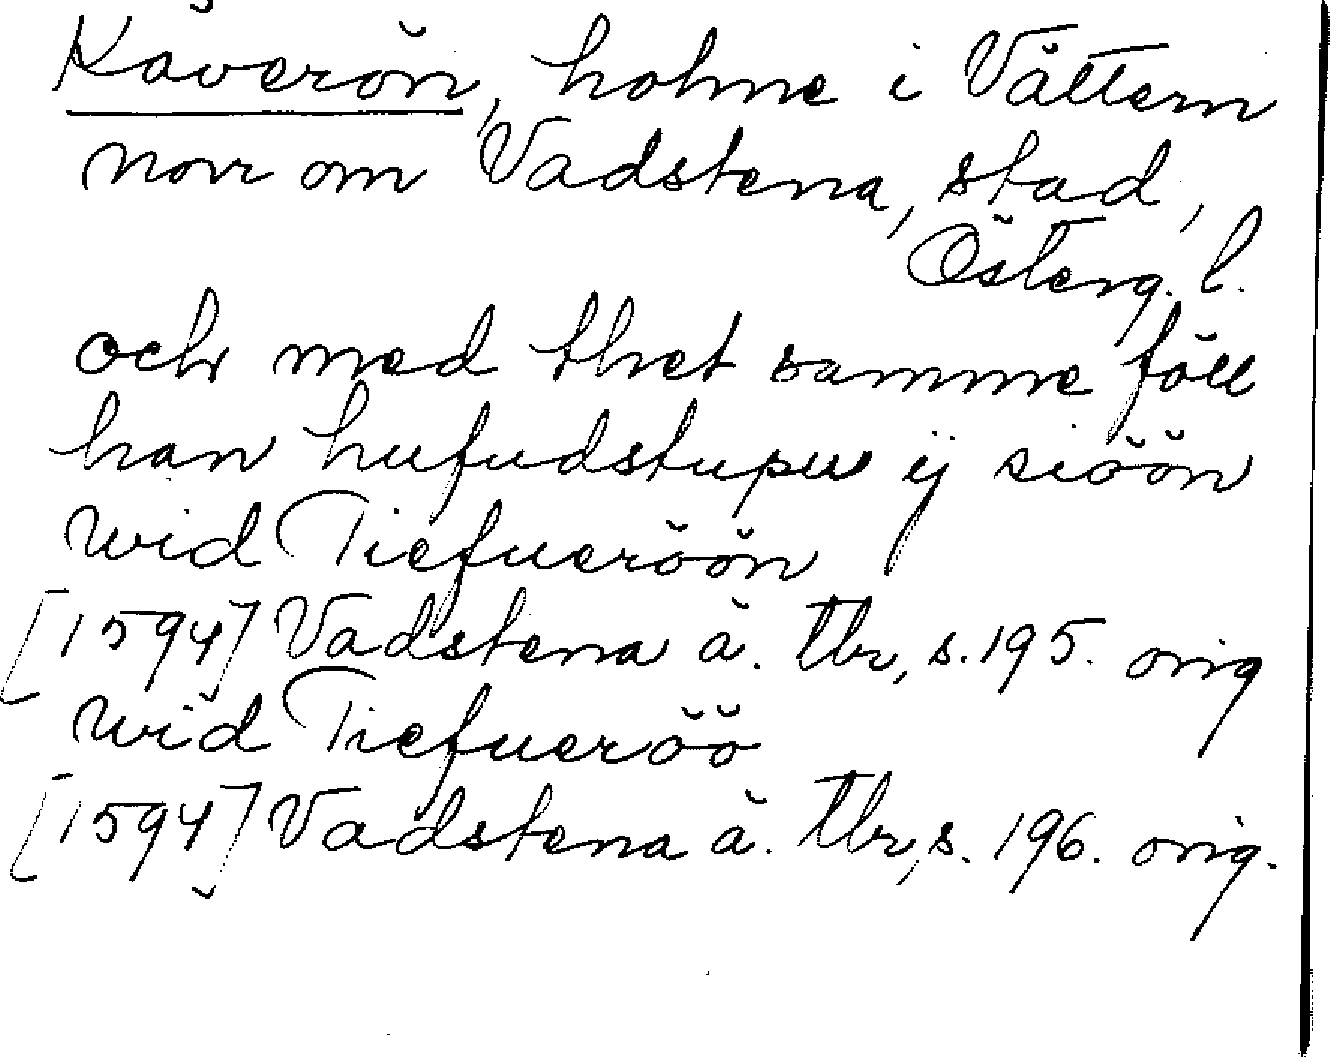 Kaverön, holme i Vättern
norr om Vadstena, stad,
Österg. l.
och med thet samme föll
han hufudstupu ij siöön
wid Tiefueröön
[1594] Vadstena ä. tbr, s. 195. orig
wid Tiefueröö
[1594] Vadstena ä. tbr, s. 196. orig.